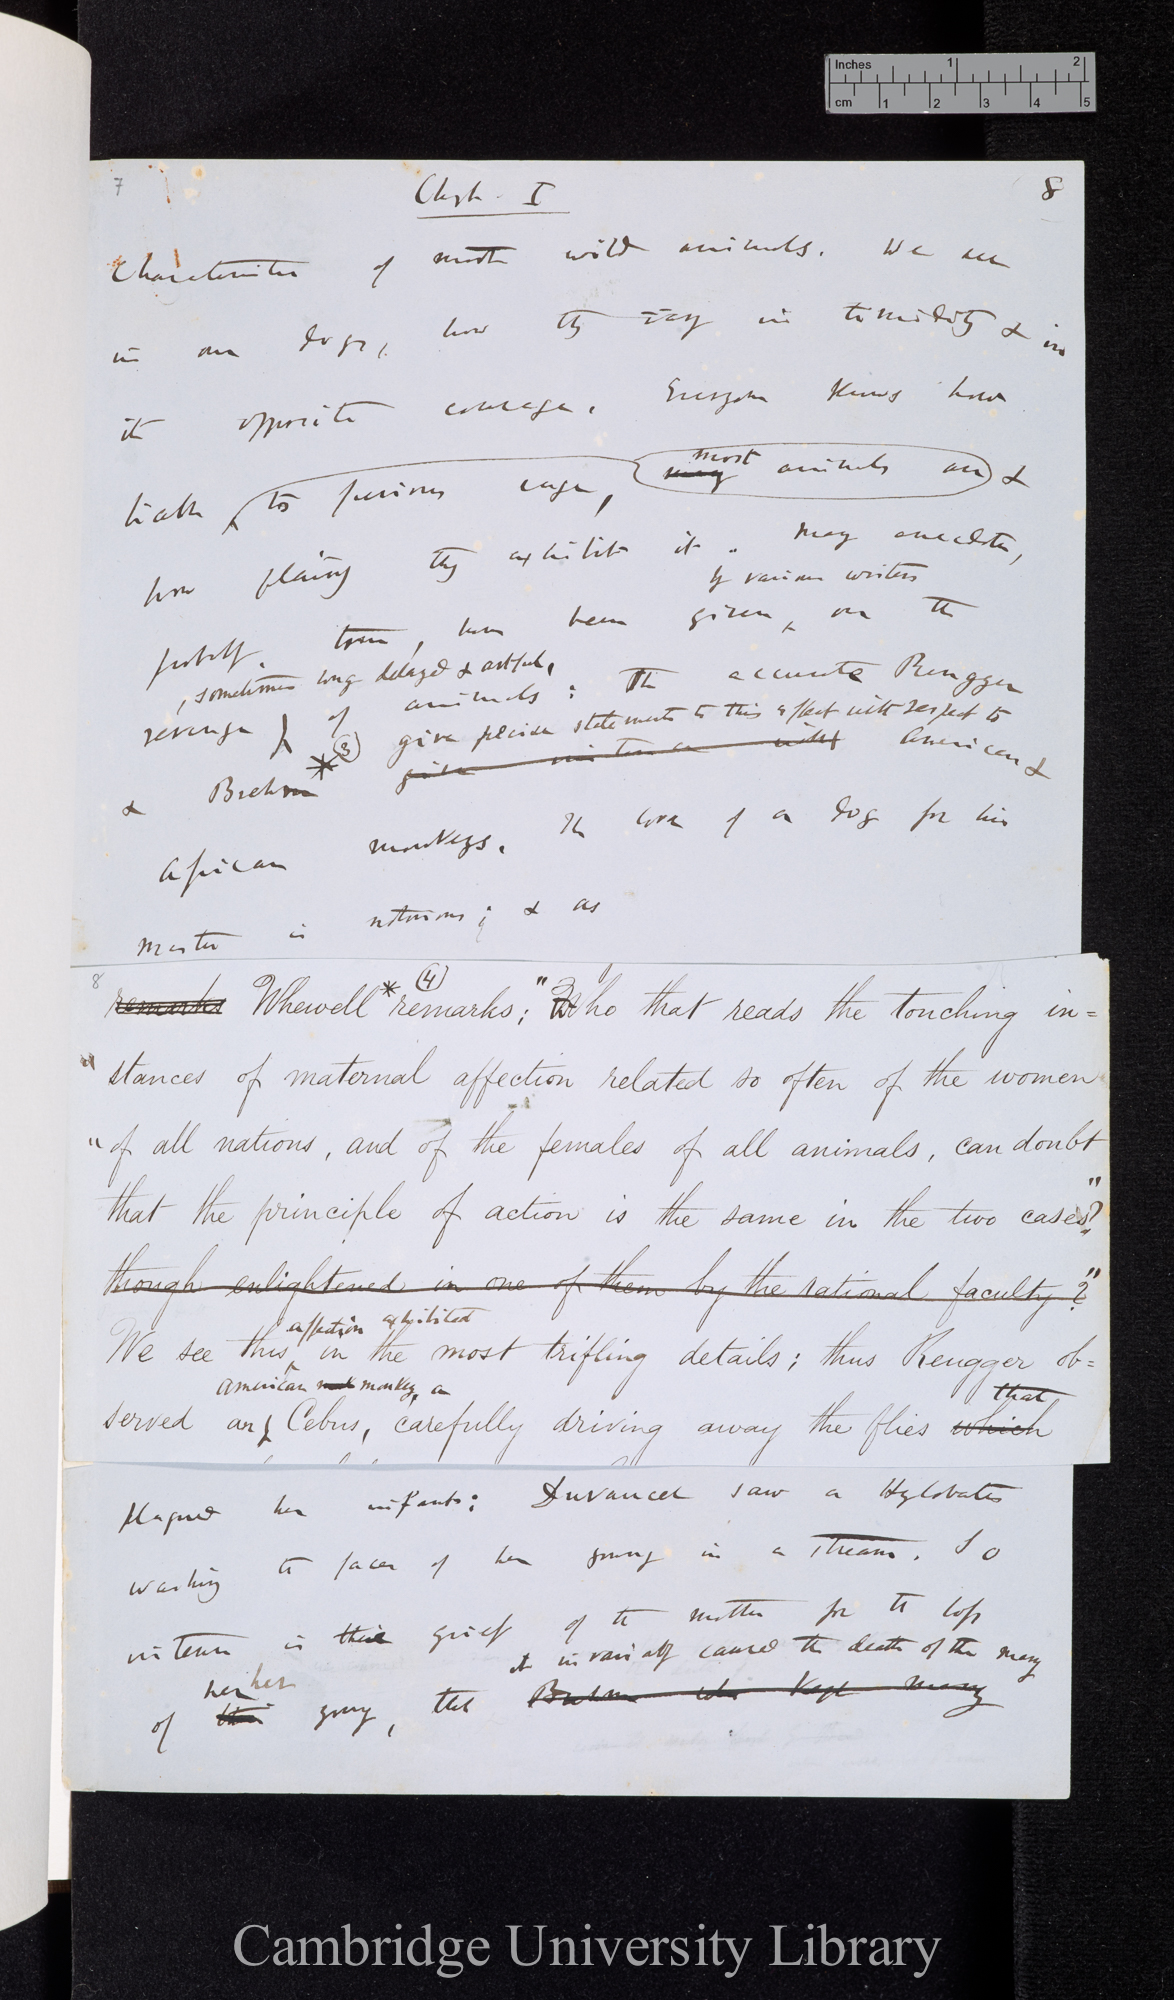 Inches 1 2
cm 1 2 3 4 5
7 Chap. I 8
characteristic of most wild animals. We see
in our dogs, how they vary in timidity & in
its opposite courage. Everyone knows how
liable to furious rage, many most animals are &
how plainly they exhibit it. Many anecdotes,
by various writers
probably true, have been given, on the
, sometimes long delayed & artful,
revenge of animals: The accurate Rengger
give precise statements to this effect with respect to
& Brehm * (3) American &
African monkeys. The love of a dog for his
master is notorious; & as
8 (4)
remarks Whewell * remarks; "Who that reads the touching in=
"stances of maternal affection related so often of the women
"of all nations, and of the females of all animals, can doubt
that the principle of action is the same in the two cases?"
though enlightened in one of them by the rational faculty?"
affection exhibited
We see this in the most trifling details; thus Rengger ob=
American monkey, a that
served an Cebus, carefully driving away the flies which
plagued her infants; Duvaucel saw a Hylobates
washing the faces of her young in a stream. So
intense is their grief of the mother for the loss
it invariably caused the death of the many
her her
of their young, that Brehm who kept many
Cambridge University Library